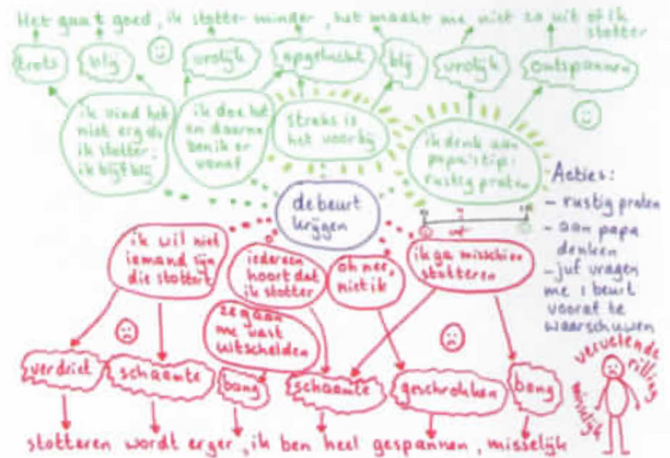 Het gaat goed, ik stotter minder, het maakt me niet zo uit of ik
stotter
trots
blij
vrolijk
opgelucht
blij
vrolijk
ontspannen
ik vind het
niet erg als
ik stotter,
ik blijf blij
ik doe het
en daarna
ben ik er
vanaf
straks is
het voorbij
ik denk aan
papa's tip:
rustig praten
de beurt
krijgen
Acties:
- rustig praten
- aan papa
denken
- juf vragen
me 1 beurt
vooraf te
waarschuwen
ik wil niet
iemand zijn
die stottert
iedereen
hoort dat
ik stotter
oh nee,
niet ik
ik ga misschien
stotteren
ze gaan
me vast
uitschelden
verdriet
schaamte
bang
schaamte
geschrokken
bang
vervelende
rilling
misselijk
stotteren wordt erger, ik ben heel gespannen, misselijk